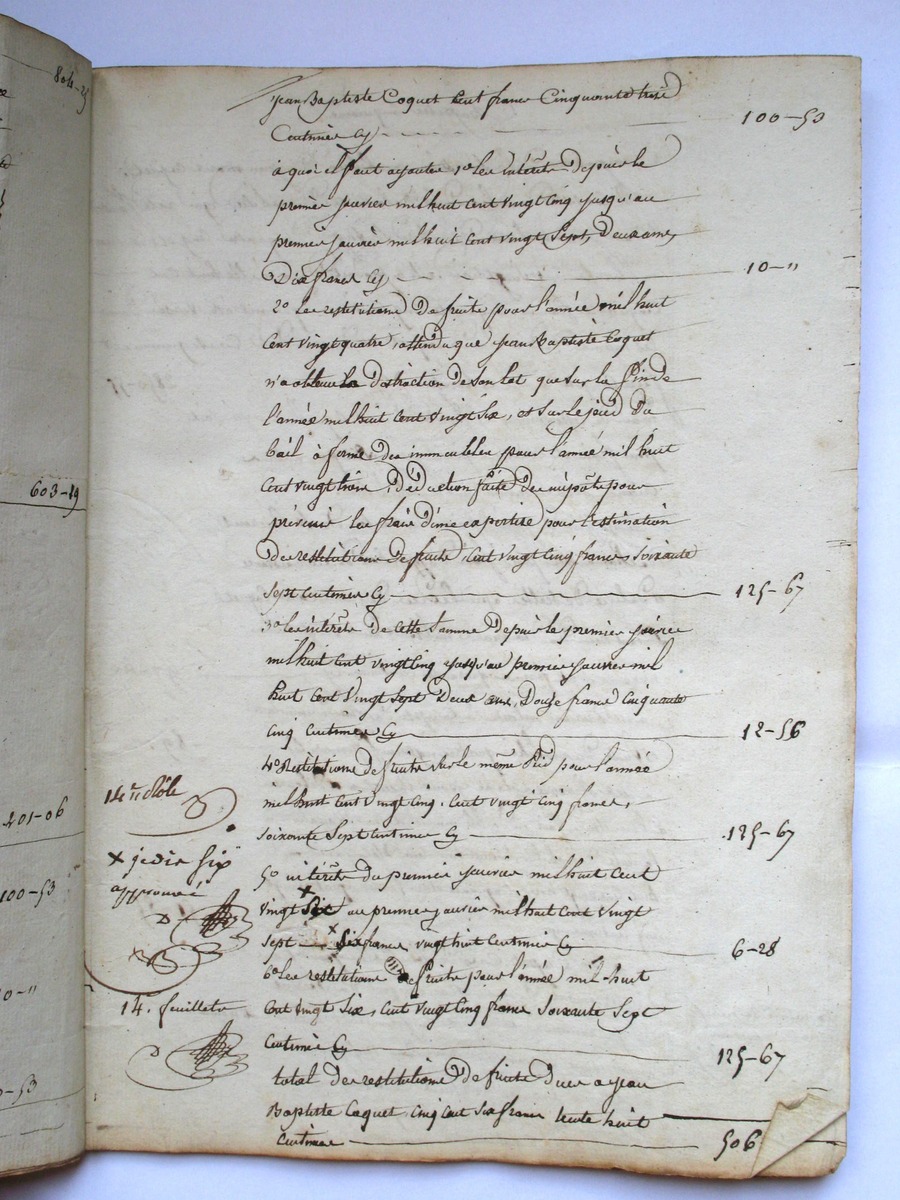 804-25
603-19
201-06
100-53
0-"
-53
Jean Baptiste Coquet Cent francs Cinquante trois
Centimes Cy 100-53
à quoi il faut ajouter 1° les intérêts Depuis le
premier janvier mil huit Cent Vingt Cinq jusqu'au
premier janvier mil huit Cent vingt Sept, Deux ans,
Dix francs Cy 10-"
2° Les restitutions De fruits pour l'année mil huit
Cent Vingt quatre, attendu que Jean Baptiste Coquet
n'a obtenu la Distraction de Son Lot que Sur la fin de
l'année mil huit Cent Vingt Six, et Sur le pied Du
bail à ferme des immeubles pour l'année mil huit
Cent Vingt trois, Déduction faite Des impôts pour
prévenir les frais d'une expertise pour l'estimation
des restitutions De fruits, Cent Vingt Cinq francs Soixante
Sept Centimes Cy 125-67
3° Les intérêts De Cette Somme Depuis le premier janvier
mil huit Cent Vingt Cinq jusqu'au premier janvier mil
huit Cent Vingt Sept Deux ans, Douze francs Cinquante
Cinq Centimes Cy 12-56
4° Restitutions De fruits Sur le même Pied pour l'année
mil huit Cent Vingt Cinq, Cent Vingt Cinq francs,
Soixante Sept Centimes Cy 125-67
5° intérêts Du premier janvier mil huit Cent
Vingt x Six au premier janvier mil huit Cent Vingt
Sept x Six francs Vingt huit Centimes Cy 6-28
6° Les restitutions De fruits pour l'année mil-huit
Cent Vingt Six, Cent Vingt Cinq francs Soixante Sept
Centimes Cy 125-67
total Des restitutions De fruits Dues a Jean
Baptiste Coquet Cinq Cent Six francs trente huit
Centimes 506
14e Rôle
x je dis Six
approuvé
14e feuillet